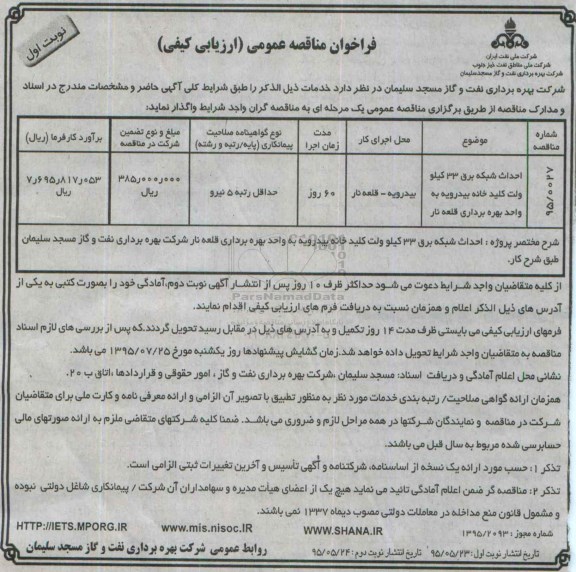 نوبت اول
شرکت ملی نفت ایران
شرکت ملی مناطق نفت خیز جنوب
شرکت بهره برداری نفت و گاز مسجدسلیمان
فراخوان مناقصه عمومی (ارزیابی کیفی)
شرکت بهره برداری نفت و گاز مسجد سلیمان در نظر دارد خدمات ذیل الذکر را طبق شرایط کلی آگهی حاضر و مشخصات مندرج در اسناد
و مدارک مناقصه از طریق برگزاری مناقصه عمومی یک مرحله ای به مناقصه گران واجد شرایط واگذار نماید:
شماره مناقصه
موضوع
محل اجرای کار
مدت زمان اجرا
نوع گواهینامه صلاحیت پیمانکاری (پایه/رتبه و رشته)
مبلغ و نوع تضمین شرکت در مناقصه
برآورد کارفرما (ریال)
۹۵/۰۰۲۷
احداث شبکه برق ۳۳ کیلو
ولت کلید خانه بیدرویه به
واحد بهره برداری قلعه نار
بیدرویه - قلعه نار
۶۰ روز
حداقل رتبه ۵ نیرو
۳۸۵٫۰۰۰٫۰۰۰
ریال
۷٫۶۹۵٫۸۱۷٫۰۵۳
ریال
شرح مختصر پروژه : احداث شبکه برق ۳۳ کیلو ولت کلید خانه بیدرویه به واحد بهره برداری قلعه نار شرکت بهره برداری نفت و گاز مسجد سلیمان
طبق شرح کار.
از کلیه متقاضیان واجد شرایط دعوت می شود حداکثر ظرف ۱۰ روز پس از انتشار آگهی نوبت دوم،آمادگی خود را بصورت کتبی به یکی از
آدرس های ذیل الذکر اعلام و همزمان نسبت به دریافت فرم های ارزیابی کیفی اقدام نمایند.
فرمهای ارزیابی کیفی می بایستی ظرف مدت ۱۴ روز تکمیل و به آدرس های ذیل در مقابل رسید تحویل گردند.که پس از بررسی های لازم اسناد
مناقصه به متقاضیان واجد شرایط تحویل داده خواهد شد.زمان گشایش پیشنهادها روز یکشنبه مورخ ۱۳۹۵/۰۷/۲۵ می باشد.
نشانی محل اعلام آمادگی و دریافت اسناد: مسجد سلیمان ،شرکت بهره برداری نفت و گاز ، امور حقوقی و قراردادها ،اتاق ب ۲۰.
همزمان ارائه گواهی صلاحیت/ رتبه بندی خدمات مورد نظر به منظور تطبیق با تصویر آن الزامی و ارائه معرفی نامه و کارت ملی برای متقاضیان
شرکت در مناقصه و نمایندگان شرکتها در همه مراحل لازم و ضروری می باشد. ضمنا کلیه شرکتهای متقاضی ملزم به ارائه صورتهای مالی
حسابرسی شده مربوط به سال قبل می باشند.
تذکر ۱: حسب مورد ارائه یک نسخه از اساسنامه، شرکتنامه و آگهی تأسیس و آخرین تغییرات ثبتی الزامی است.
تذکر ۲: مناقصه گر ضمن اعلام آمادگی تائید می نماید هیچ یک از اعضای هیأت مدیره و سهامداران آن شرکت / پیمانکاری شاغل دولتی نبوده
و مشمول قانون منع مداخله در معاملات دولتی مصوب دیماه ۱۳۳۷ نمی باشند.
شماره مجوز : ۱۳۹۵/۲۰۹۳
WWW.SHANA.IR
www.mis.nisoc.IR
HTTP://IETS.MPORG.IR
تاریخ انتشار نوبت اول: ۹۵/۰۵/۲۳ تاریخ انتشار نوبت دوم: ۹۵/۰۵/۲۴
روابط عمومی شرکت بهره برداری نفت و گاز مسجد سلیمان
ParsNamadData